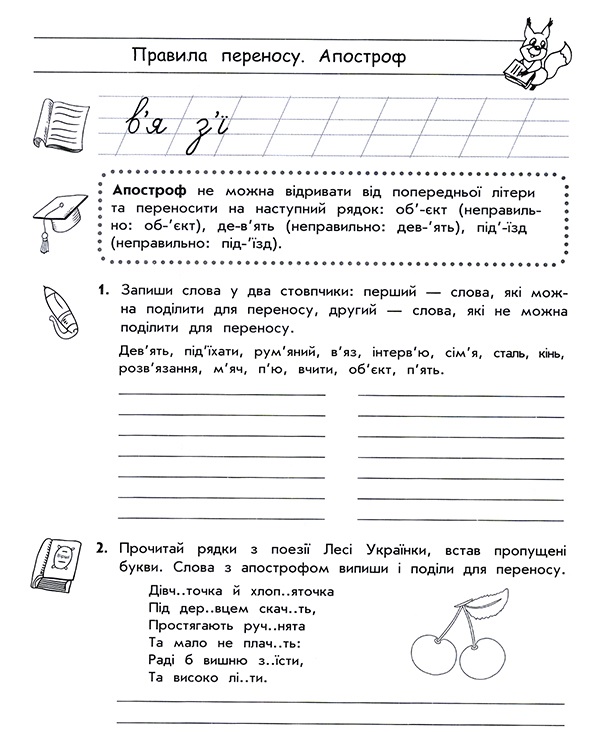 Правила переносу. Апостроф
в'я з'ї
Апостроф не можна відривати від попередньої літери
та переносити на наступний рядок: об'-єкт (неправиль-
но: об-'єкт), де-в'ять (неправильно: дев-'ять), під'-їзд
(неправильно: під-'їзд).
1. Запиши слова у два стовпчики: перший — слова, які мож-
на поділити для переносу, другий — слова, які не можна
поділити для переносу.
Дев'ять, під'їхати, рум'яний, в'яз, інтерв'ю, сім'я, сталь, кінь,
розв'язання, м'яч, п'ю, вчити, об'єкт, п'ять.
2. Прочитай рядки з поезії Лесі Українки, встав пропущені
букви. Слова з апострофом випиши і поділи для переносу.
Дівч..точка й хлоп..яточка
Під дер..вцем скач..ть,
Простягають руч..нята
Та мало не плач..ть:
Раді б вишню з..їсти,
Та високо лі..ти.